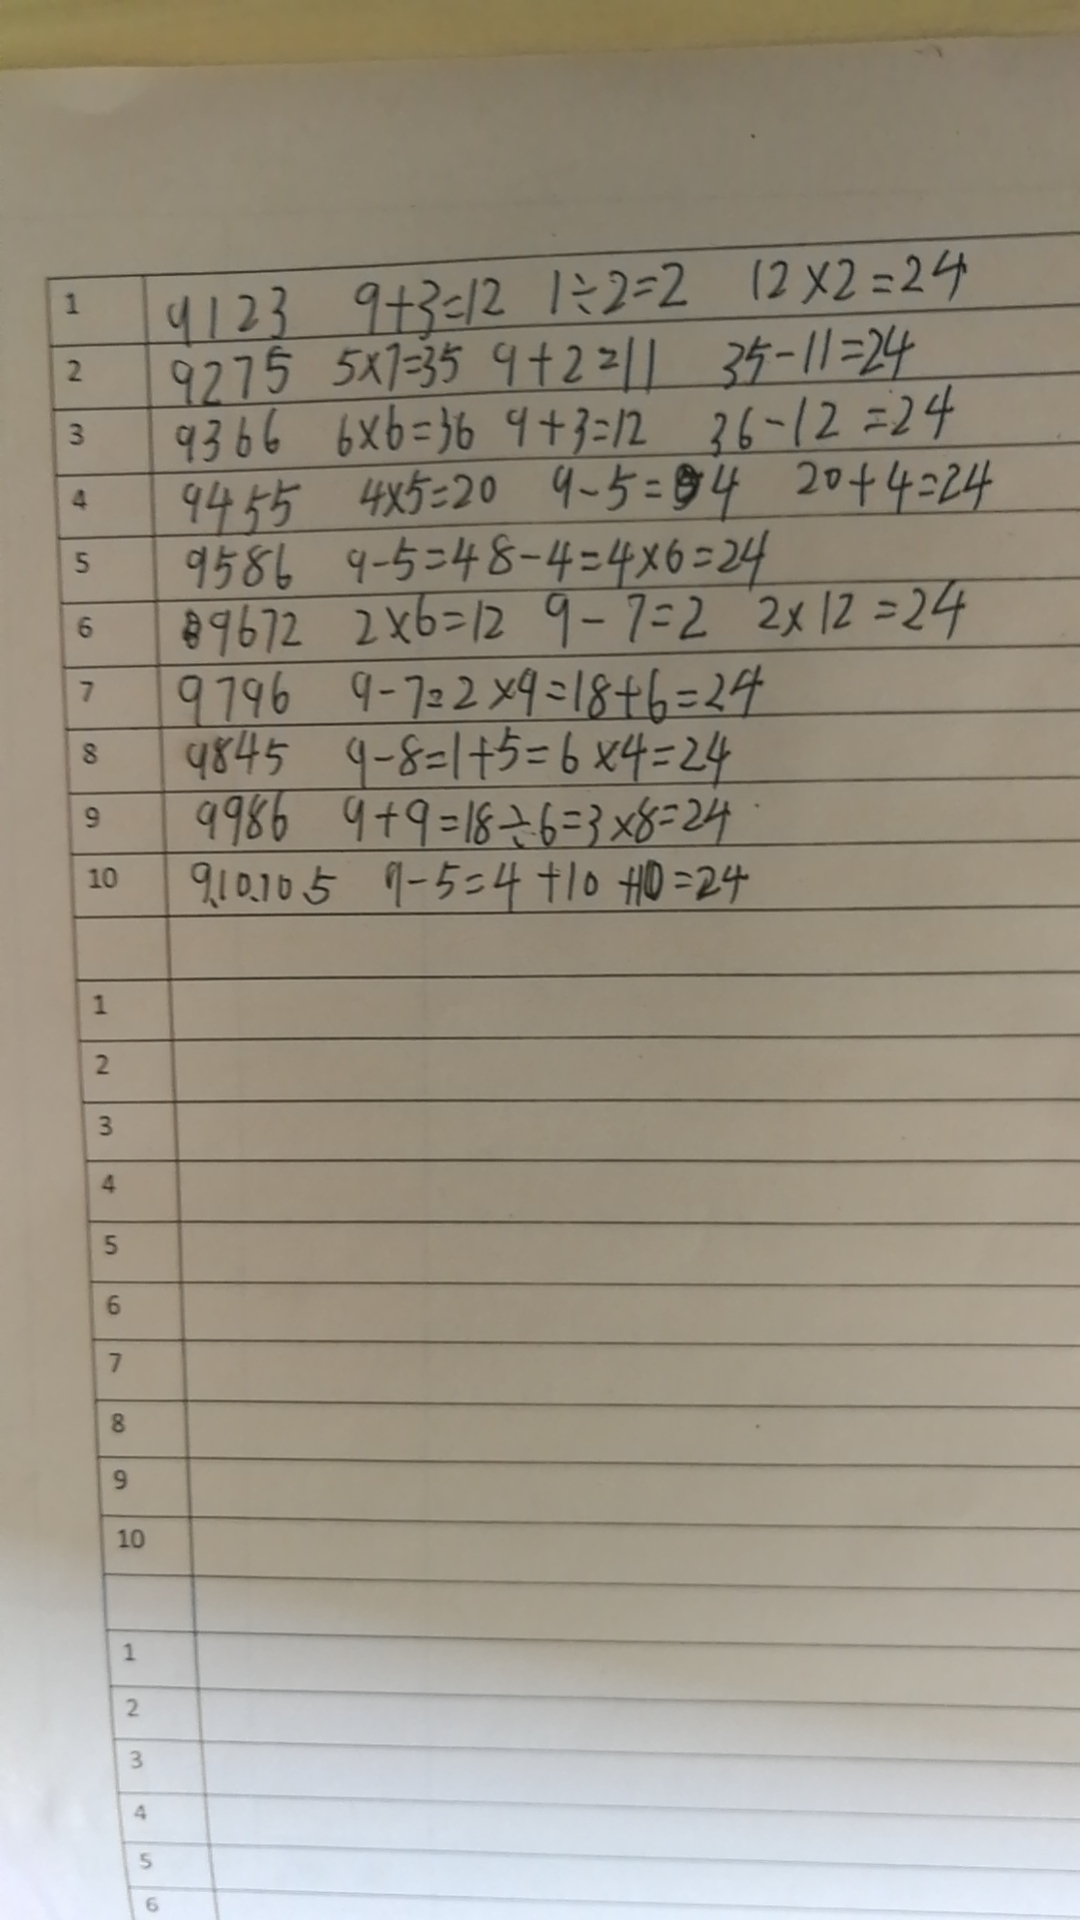 1 9123 9+3=12 1÷2=2 12×2=24
2 9275 5×7=35 9+2=11 35-11=24
3 9366 6×6=36 9+3=12 36-12=24
4 9455 4×5=20 9-5=4 20+4=24
5 9586 9-5=4 8-4=4×6=24
6 9672 2×6=12 9-7=2 2×12=24
7 9796 9-7=2×9=18+6=24
8 9845 9-8=1+5=6×4=24
9 9986 9+9=18÷6=3×8=24
10 9.10.10.5 9-5=4+10+10=24
1
2
3
4
5
6
7
8
9
10
1
2
3
4
5
6